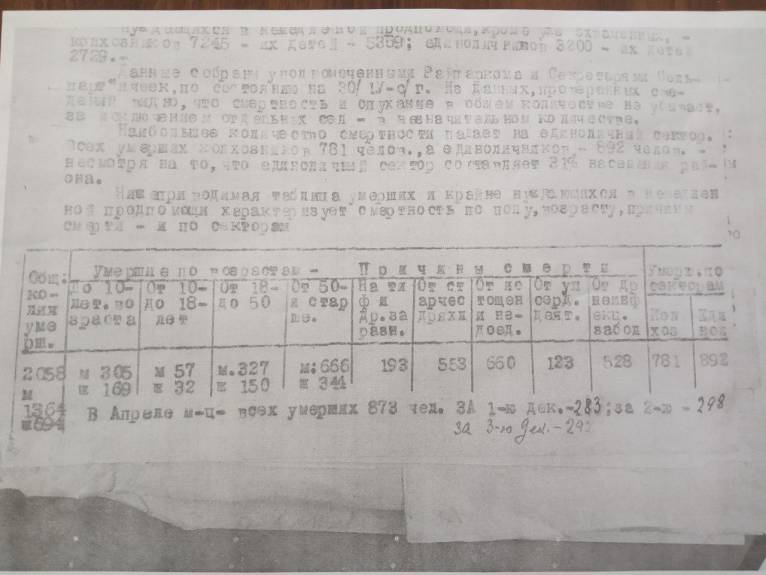 нуждающихся в немедленной продпомощи, кроме уже охваченных, -
колхозников 7245 - их детей - 5359; единоличников 3200 - их детей
2729.-
Данные собраны уполномоченными Райпаркома и Секретарями Сель-
партячеек, по состоянию на 30/IУ-с/г. Из данных, проверенных све-
дений видно, что смертность и опухание в общем количестве не убывает,
за исключением отдельных сел - в незначительном количестве.
Наибольшее количество смертности падает на единоличный сектор.
Всех умерших колхозников 781 челов., а единоличников - 892 челов. -
несмотря на то, что единоличный сектор составляет 31% населения рай-
она.
Нижеприводимая таблица умерших и крайне нуждающихся в немедлен
ной продпомощи характеризует смертность по полу, возрасту, причин
смерти - и по секторам
Общ. ко-лия уме рш.
Умершие по возрастам -
Причины смерти
Умерш. по секторам
до 10- лет. во зраста
От 10- до 18- лет
От 18- до 50
От 50- и стар ше.
На ти ф и др. за разн.
От ст арчес дряхл
От ис тощен и не- доед.
От уп серд. деят.
От др неинф екц. забол
Кол хоз
Еди нол
2058 м 1364 ж 694
м 305 ж 169
м 57 ж 32
м. 327 ж 150
м: 666 ж 344
193
553
660
123
528
781
892
В Апреле м-ц- всех умерших 873 чел. ЗА 1-ю дек.-283; за 2-ю - 298
за 3-ю дек. - 292